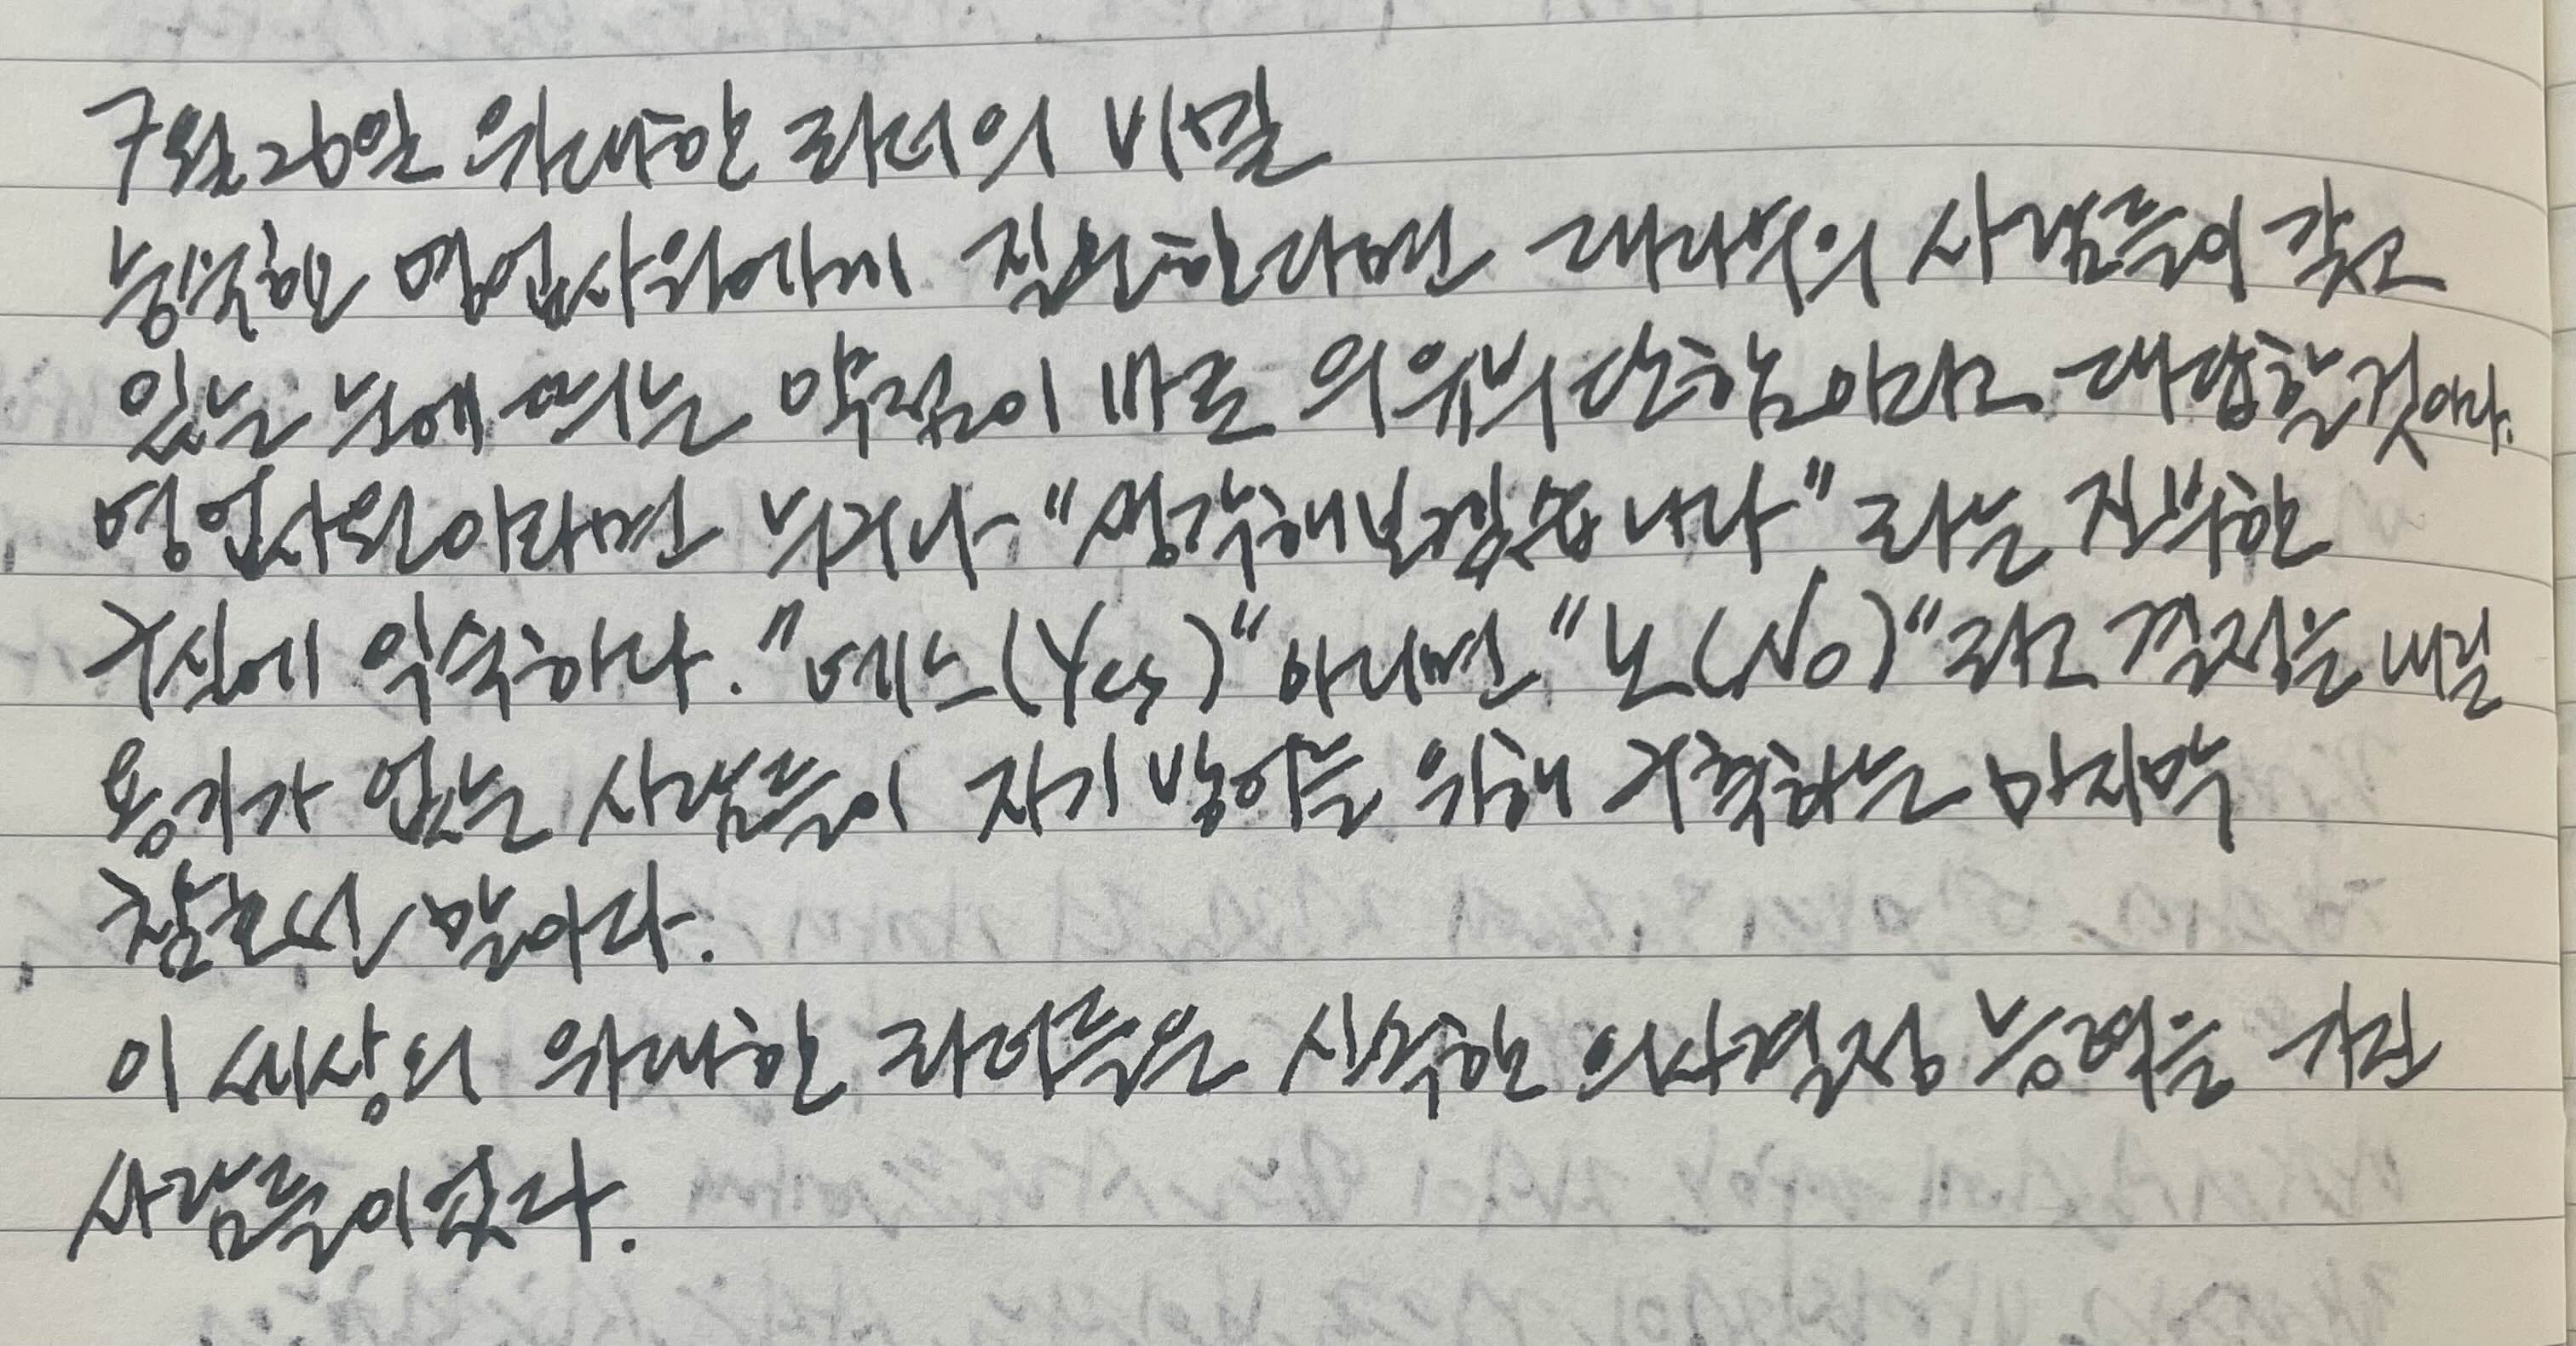 7월 26일 위대한 리더의 비밀
능숙한 영업사원에게 질문한다면 대다수의 사람들이 갖고
있는 눈에 띄는 약점이 바로 의유부단함이라고 대답할 것이다.
영업사원이라면 누구나 "생각해보겠습니다" 라는 진부한
구실에 익숙하다. "예스(Yes)" 아니면 "노(No)" 라고 결정을 내릴
용기가 없는 사람들이 자기 방어를 위해 구축하는 마지막
참호인 말이다.
이 세상의 위대한 리더들은 신속한 의사결정 능력을 가진
사람들이었다.